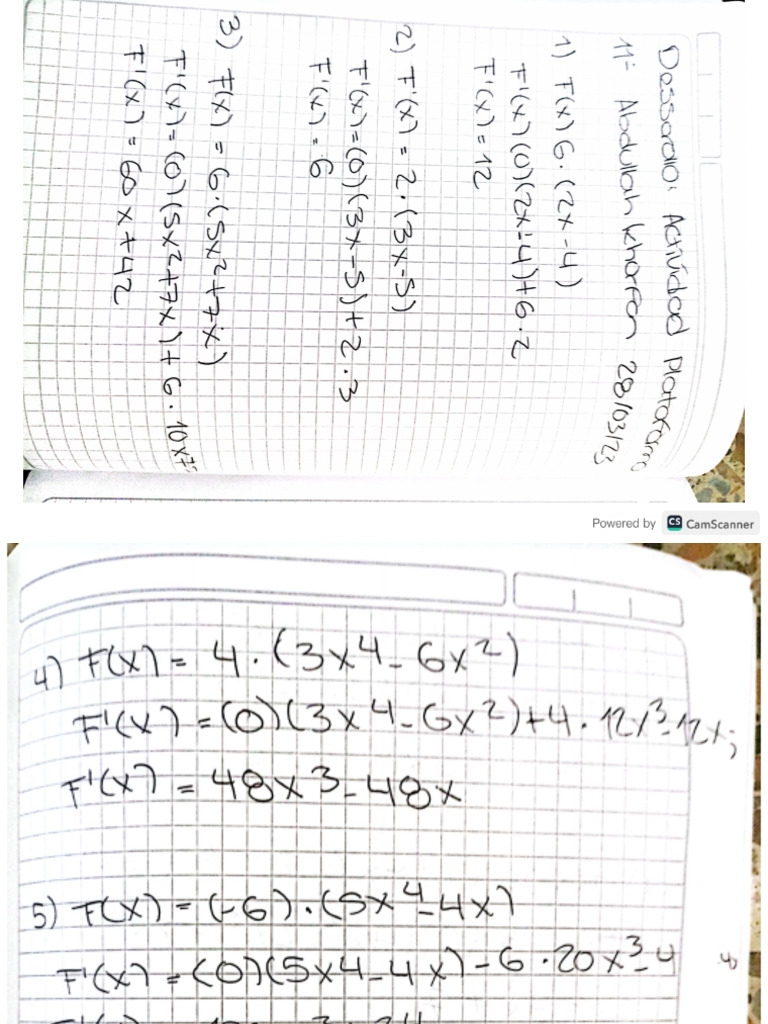 Dessarollo: Actividad Plataforma
11= Abdullah Kharfan 28/03/23
1) F(x) 6·(2x-4)
F'(x)(0)(2x-4)+6·2
F'(x)=12
2) F'(x) = 2·(3x-5)
F'(x)=(0)(3x-5)+2·3
F'(x)=6
3) F(x) = 6·(5x²+7x)
F'(x)=(0)(5x²+7x)+6·10x7
F'(x) = 60x+42
Powered by CS CamScanner
4) F(x) = 4·(3x4-6x²)
F'(x) = (0)(3x4-6x²)+4·12x³-12x;
F'(x) = 48x3-48x
5) F(x) = (-6)·(5x4-4x)
F'(x) = (0)(5x4-4x)-6·20x3-4